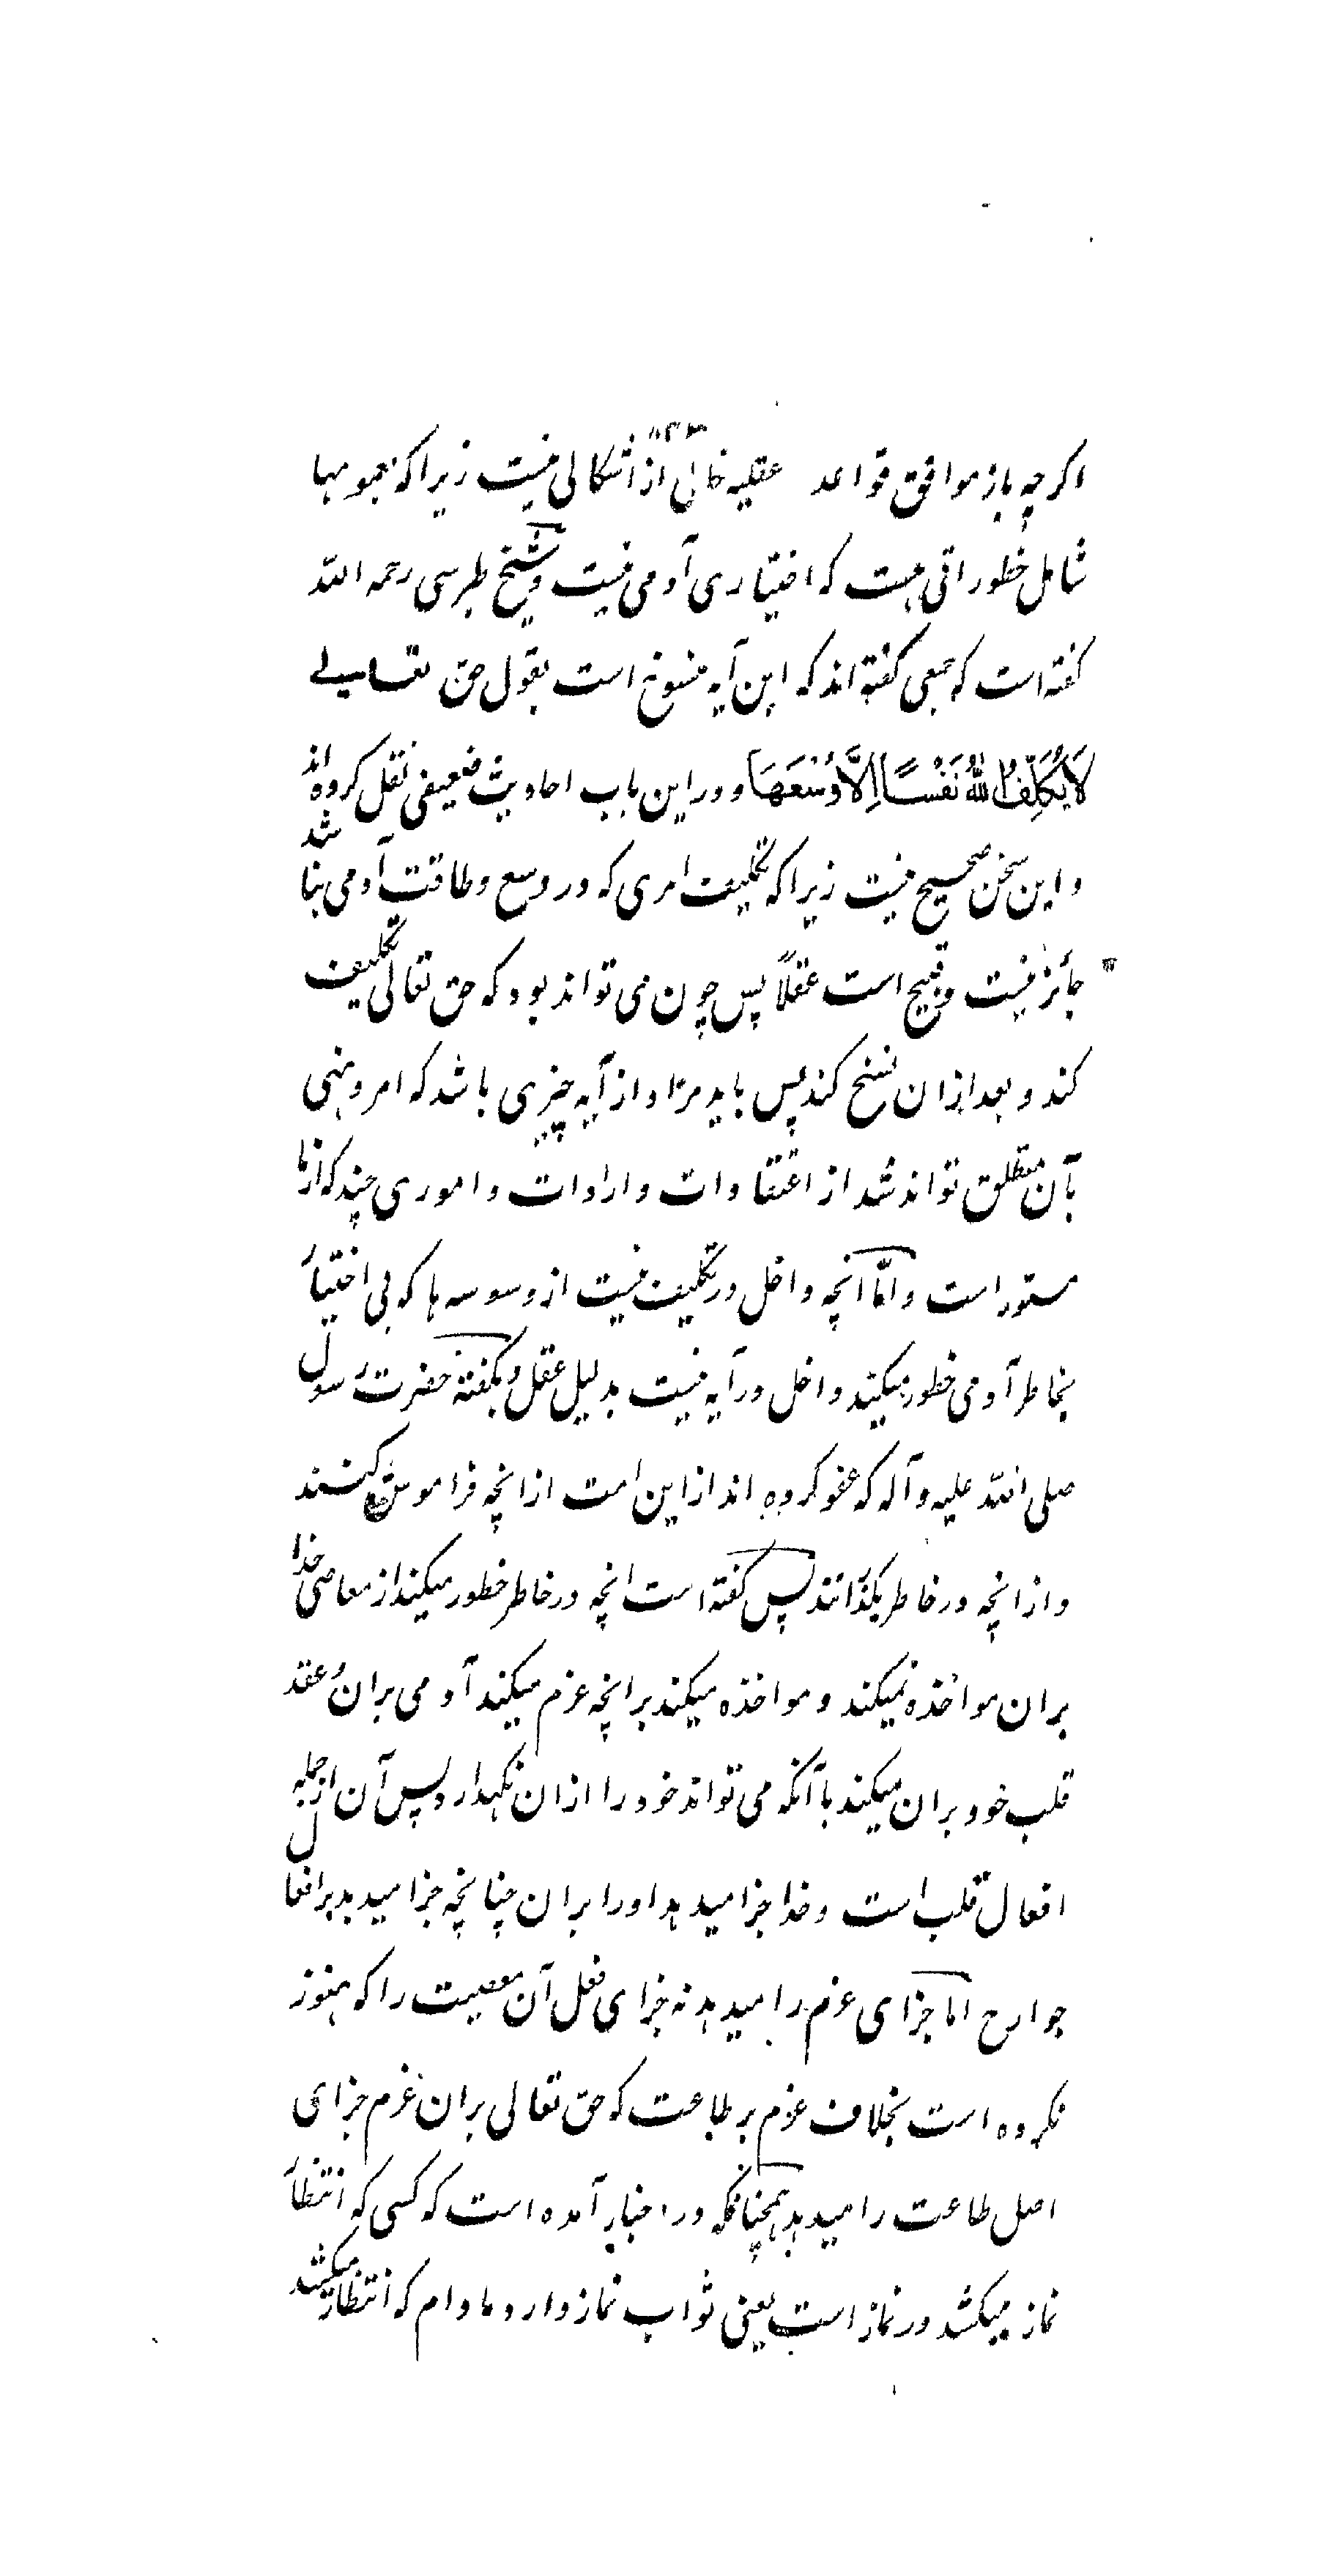 اکرچه باز موافق قواعد عقلیه خالی از اشکالی نیست زیراکه بعمومها
شامل خطوراتی هست که اختیاری آدمی نیست و شیخ طبرسی رحمه الله
کفته است که جمعی کفته‌اند که این آیه منسوخ است بقول حق تعالی
لَا يُكَلِّفُ اللهُ نَفْسًا اِلَّا وُسْعَهَا و در این باب احادیث ضعیفی نقل کرده اند
و این سخن صحیح نیست زیرا که تکلیف امری که در وسع و طاقت آدمی نباشد
جائز نیست و قبیح است عقلاً پس چون می تواند بود که حق تعالی تکلیف
کند و بعد ازان نسخ کند پس باید مراد از آیه چیزی باشد که امر و نهی
بآن متعلق تواند شد از اعتقادات و ارادات و اموری چند که از ما
مستور است و امّا انچه داخل در تکلیف نیست از وسوسه ها که بی اختیار
بخاطر آدمی خطور میکند داخل در آیه نیست بدلیل عقل و بکفتهٔ حضرت رسول
صلی الله علیه و آله که عفو کرده اند از این امت از انچه فراموش کنند
و از انچه در خاطر بکذرانند پس کفته است انچه در خاطر خطور میکند از معاصی خدا
بران مواخذه نمیکند و مواخذه میکند برانچه عزم میکند آدمی بران و عقد
قلب خود بران میکند با آنکه می تواند خود را ازان نکهدارد پس آن از جمله
افعال قلب است و خدا جزا میدهد او را بران چنانچه جزا میدهد بر افعال
جوارح اما جزای عزم را میدهد نه جزای فعل آن معصیت را که هنوز
نکرده است بخلاف عزم بر طاعت که حق تعالی بران عزم جزای
اصل طاعت را میدهد همچنانکه در اخبار آمده است که کسی که انتظار
نماز میکشد در نماز است یعنی ثواب نماز دارد مادام که انتظار میکشد